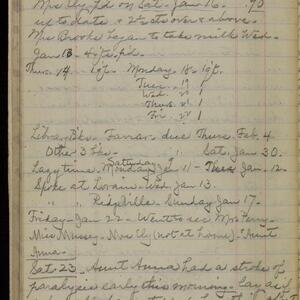 Mrs Ely pd on Sat- Jan 16- .90
up to date & 2½ cts over & above.
Mrs Brooks began to take milk Wed-
Jan 13 - 4 pts. pd.
Thurs. 14 1 pt. Monday 18 - 1 pt.
Tues. 19 1
Wed. 1
Thurs. 1
Fri. 1
Library Bks. - Farrar due Thurs. Feb. 4.
Other 3 bks - Sat. Jan 30.
Saturday 9
Lazy time. Monday Jan 11 - Jan. 12.
Spoke at Lorain Wed. Jan 13.
" " Ridgeville Sunday Jan 17-
Friday - Jan 22 - Went to see Mrs Perry
Miss Mussey - Mrs Ely (not at home). Aunt
Anna -
Sat. 23 - Aunt Anna had a stroke of
paralysis early this morning - Lay as if